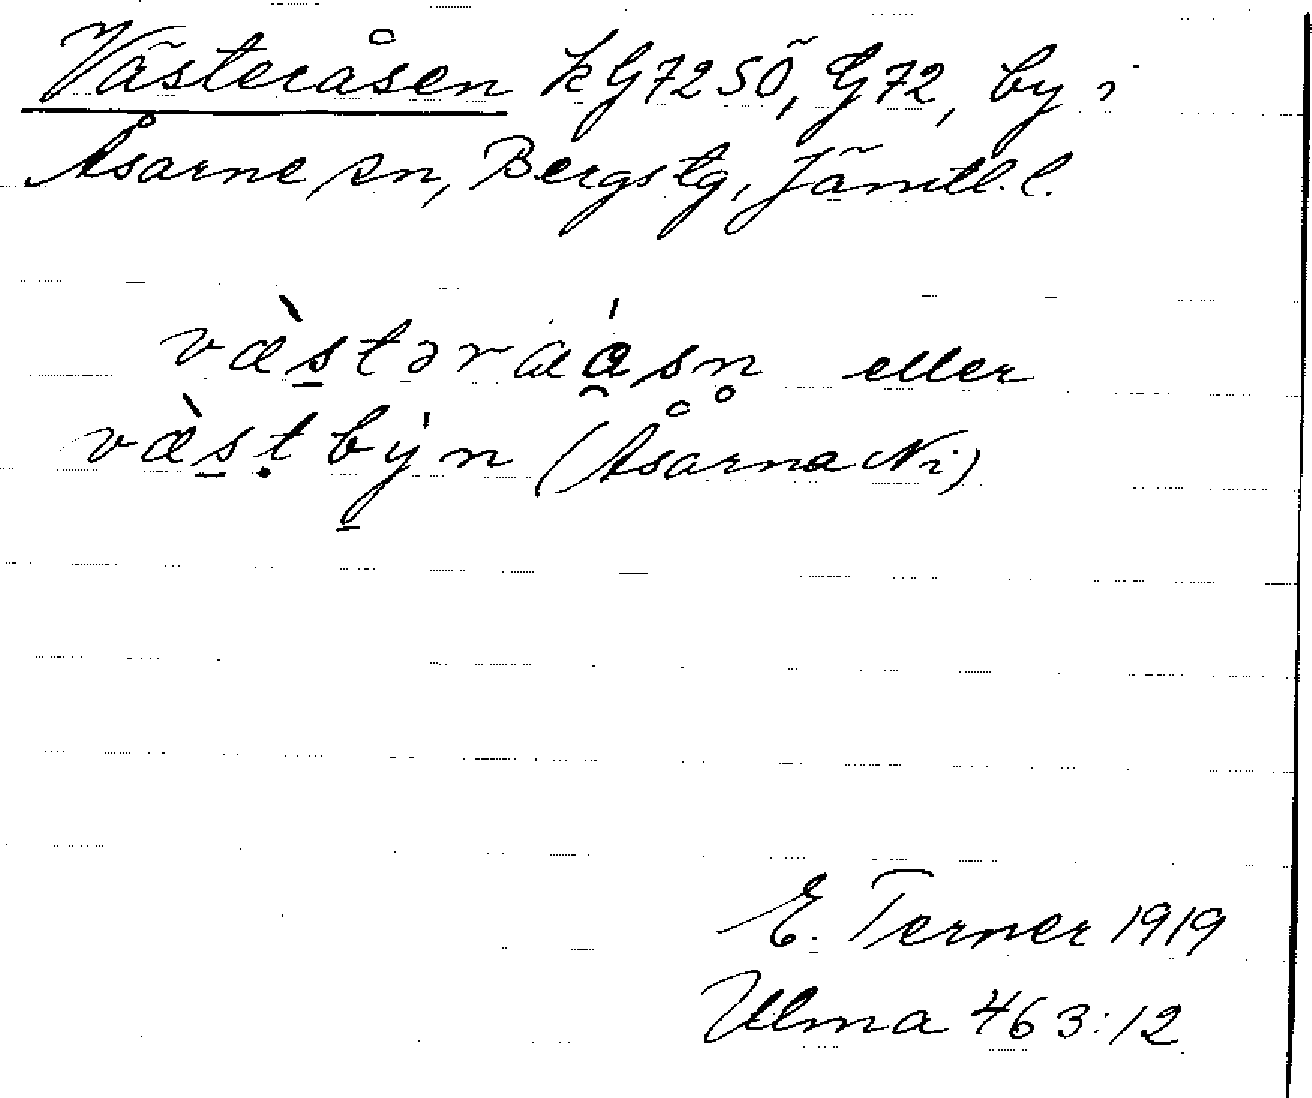 Västeråsen kG72SÖ, G72, by i
Åsarne sn, Bergs tg, Jämtl. l.
væ̀s̱tərαά̯sn̥ eller
væ̀s̱ṭbý̱n (Åsarna Ni)
E. Terner 1919
Ulma 463:12